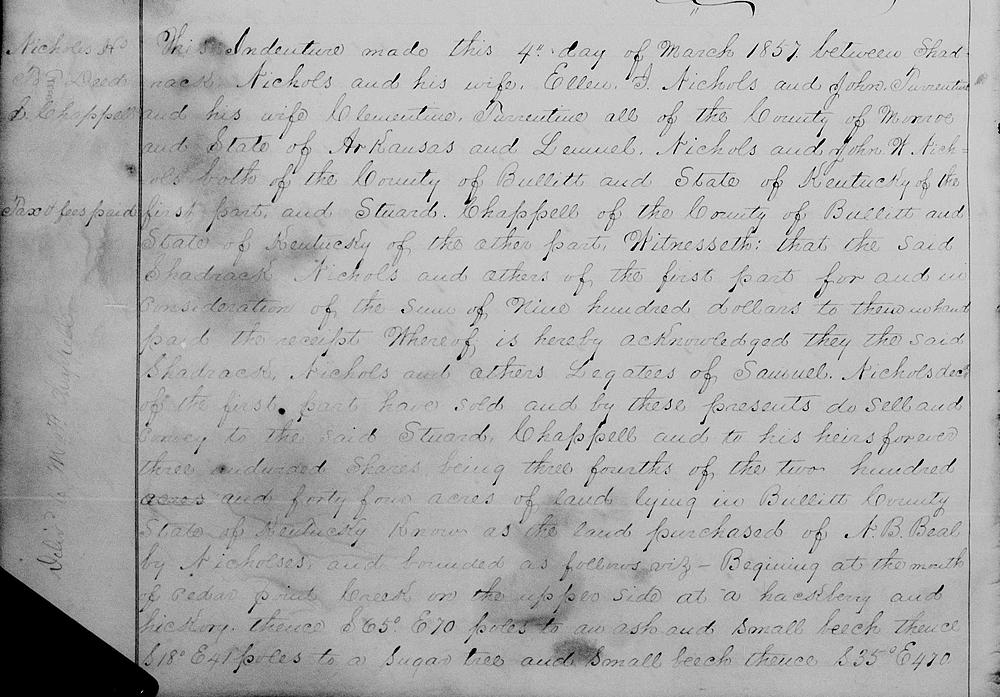 Nicholes Hs
To } Deed
S. Chappell
Tax & fees paid
This Indenture made this 4" day of March 1857 between Shad-
rack Nichols and his wife, Ellen. F. Nichols and John. Turrentine
and his wife Clementine. Turrentine all of the County of Monroe
and State of Arkansas and Lemuel. Nichols and John W. Nich=
ols both of the County of Bullitt and State of Kentucky of the
first part, and Stuard. Chappell of the County of Bullitt and
State of Kentucky of the other part, Witnesseth: that the said
Shadrack Nichols and others of the first part for and in
consideration of the sum of Nine hundred dollars to them in hand
paid the receipt Whereof, is hereby acknowledged they the said
Shadrack, Nichols and others Legatees of Samuel. Nichols decd
of the first part have sold and by these presents do sell and
convey to the said Stuard, Chappell and to his heirs forever
three undivided Shares being three fourths of the two hundred
acres and forty four acres of land lying in Bullitt County
State of Kentucky Known as the land purchased of N. B. Beal
by Nicholses, and bounded as follows viz - Begining at the mouth
of Cedar point Creek on the upper side at a hackberry and
hickory. thence S 65° E 70 poles to an ash and small beech thence
S 18° E 41 poles to a sugar tree and small beech thence S 35° E 470